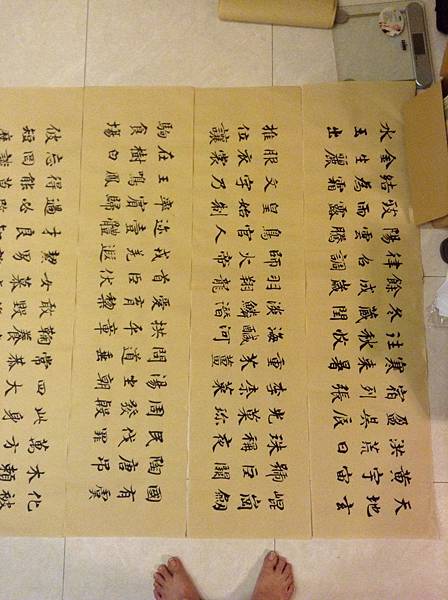 天地玄
黃宇宙
洪荒日
盈昃辰
宿列張
寒來暑
往秋收
冬藏閏
餘成歲
律呂調
陽雲騰
致雨露
結為霜
金生麗
水玉出
崐岡劍
號巨闕
珠稱夜
光菓珍
李柰菜
重芥薑
海鹹河
淡鱗潛
羽翔龍
師火帝
鳥官人
皇始制
文字乃
服衣裳
推位讓
國有虞
陶唐弔
民伐罪
周發殷
湯坐朝
問道垂
拱平章
愛育黎
首臣伏
戎羌遐
邇壹體
率賓歸
王鳴鳳
在樹白
駒食場
化被
木賴
萬方
此身
四大
常恭
鞠養
敢毀
女慕
絜男
才良
過必
得能莫
忘罔談
彼短靡